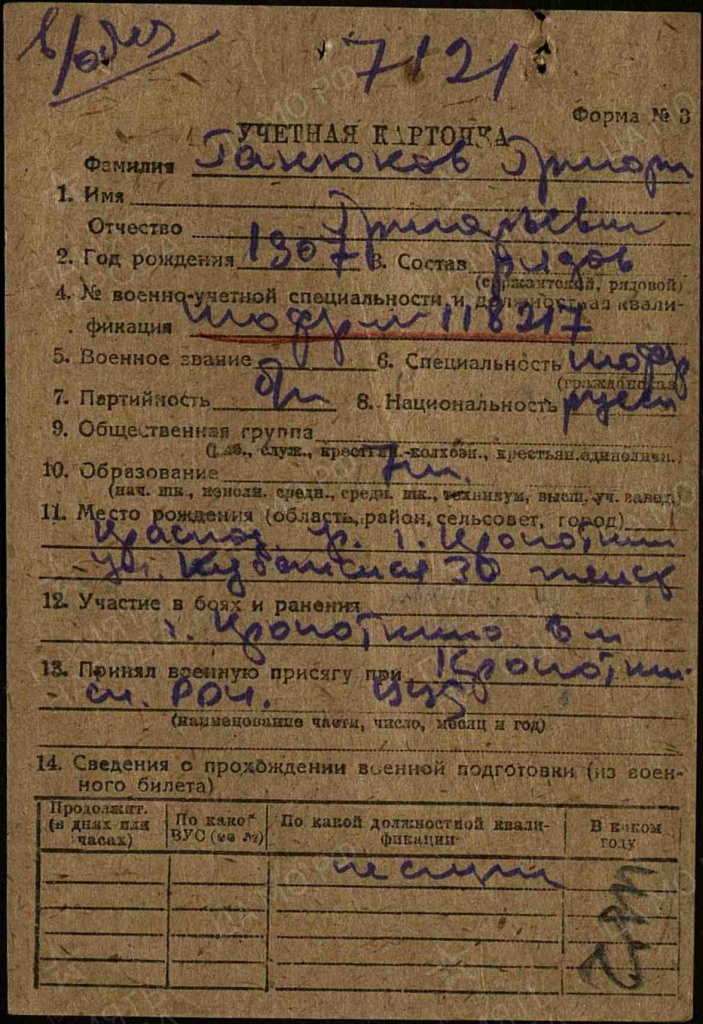 7121
Форма № 3
УЧЕТНАЯ КАРТОЧКА
Фамилия Ганюков Григори
1. Имя
Отчество Григорьевич
2. Год рождения 1907 3. Состав рядов
(сержантский, рядовой)
4. № военно-учетной специальности и должностная квали-
фикация шофер 118217
5. Военное звание 6. Специальность шофер
(гражданская)
7. Партийность б/п 8. Национальность русск
9. Общественная группа
(раб., служ., крестьян.-колхозн., крестьян.единоличн.)
10. Образование 7 кл.
(нач. шк., неполн. средн., средн. шк., техникум, высш. уч. завед.)
11. Место рождения (область, район, сельсовет, город)
г. Кропоткин
ул. Кубанская 30
12. Участие в боях и ранения
г. Кропоткино
13. Принял военную присягу при Кропоткин
(наименование части, число, месяц и год)
14. Сведения о прохождении военной подготовки (из воен-
ного билета)
Продолжит. (в днях или часах) По какой ВУС (по №) По какой должностной квали-фикации В каком году
не служил